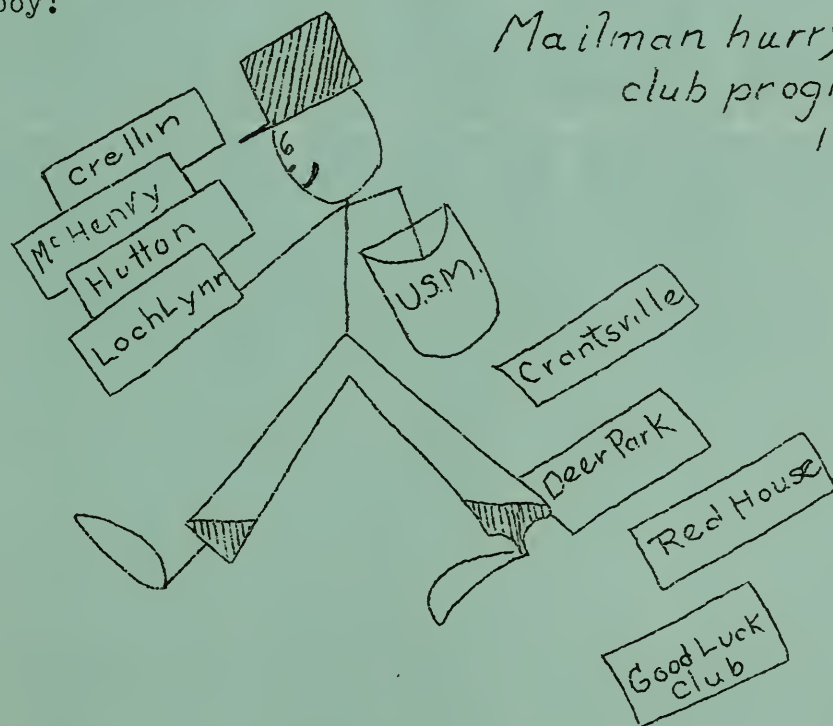 Mailman hurry
club progr
Crellin
McHenry
Hutton
LochLynn
U.S.M.
Crantsville
Deer Park
Red House
Good Luck
Club